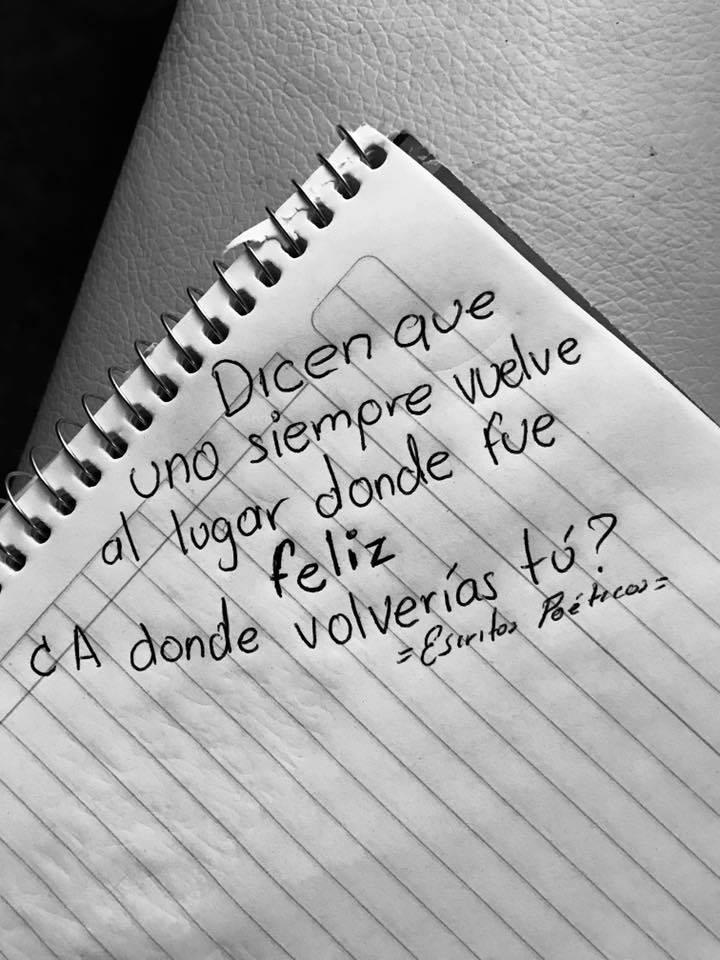 Dicen que
uno siempre vuelve
al lugar donde fue
feliz
¿A donde volverías tú?
=Escritos Poéticos=